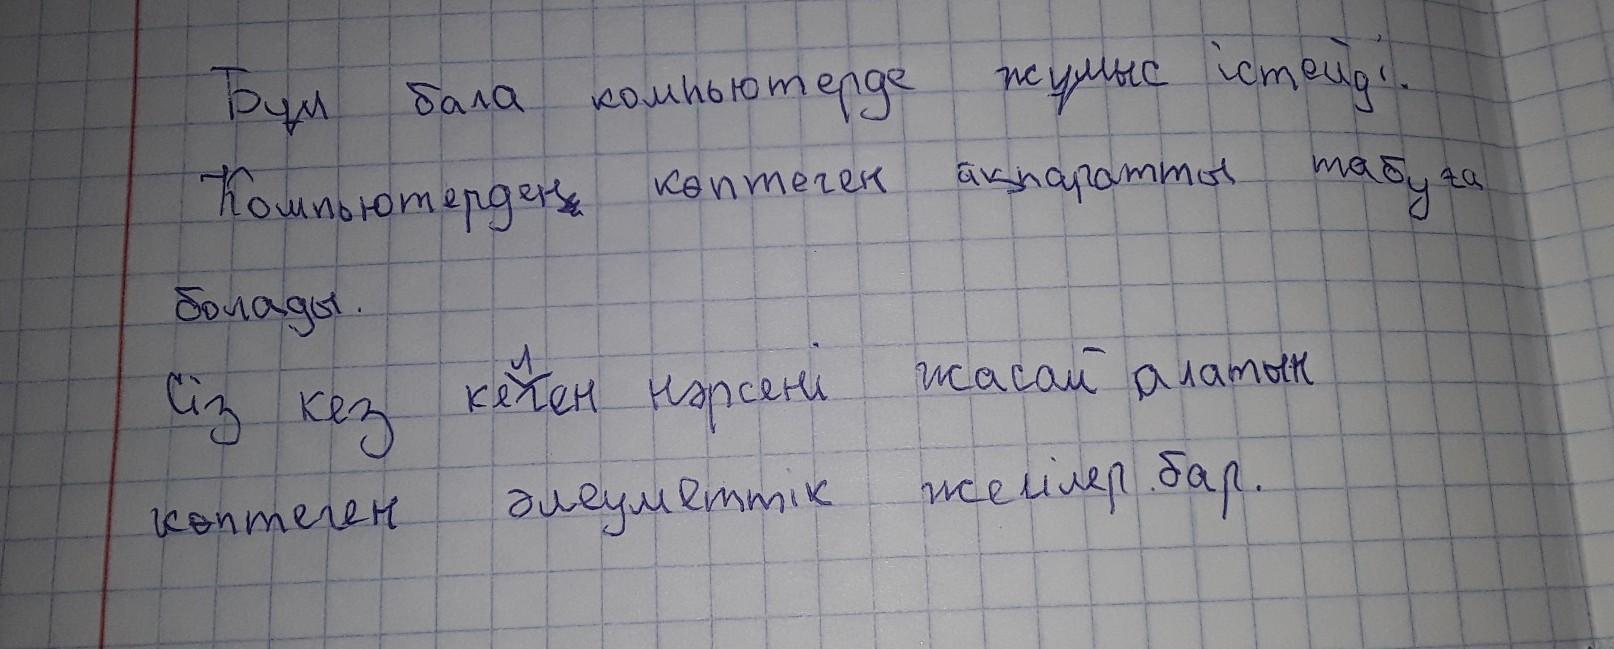 Бұл бала компьютерде жұмыс істейді.
Компьютерден көптеген ақпаратты табуға
болады.
Сіз кез келген нәрсені жасай алатын
көптеген әлеуметтік желілер бар.